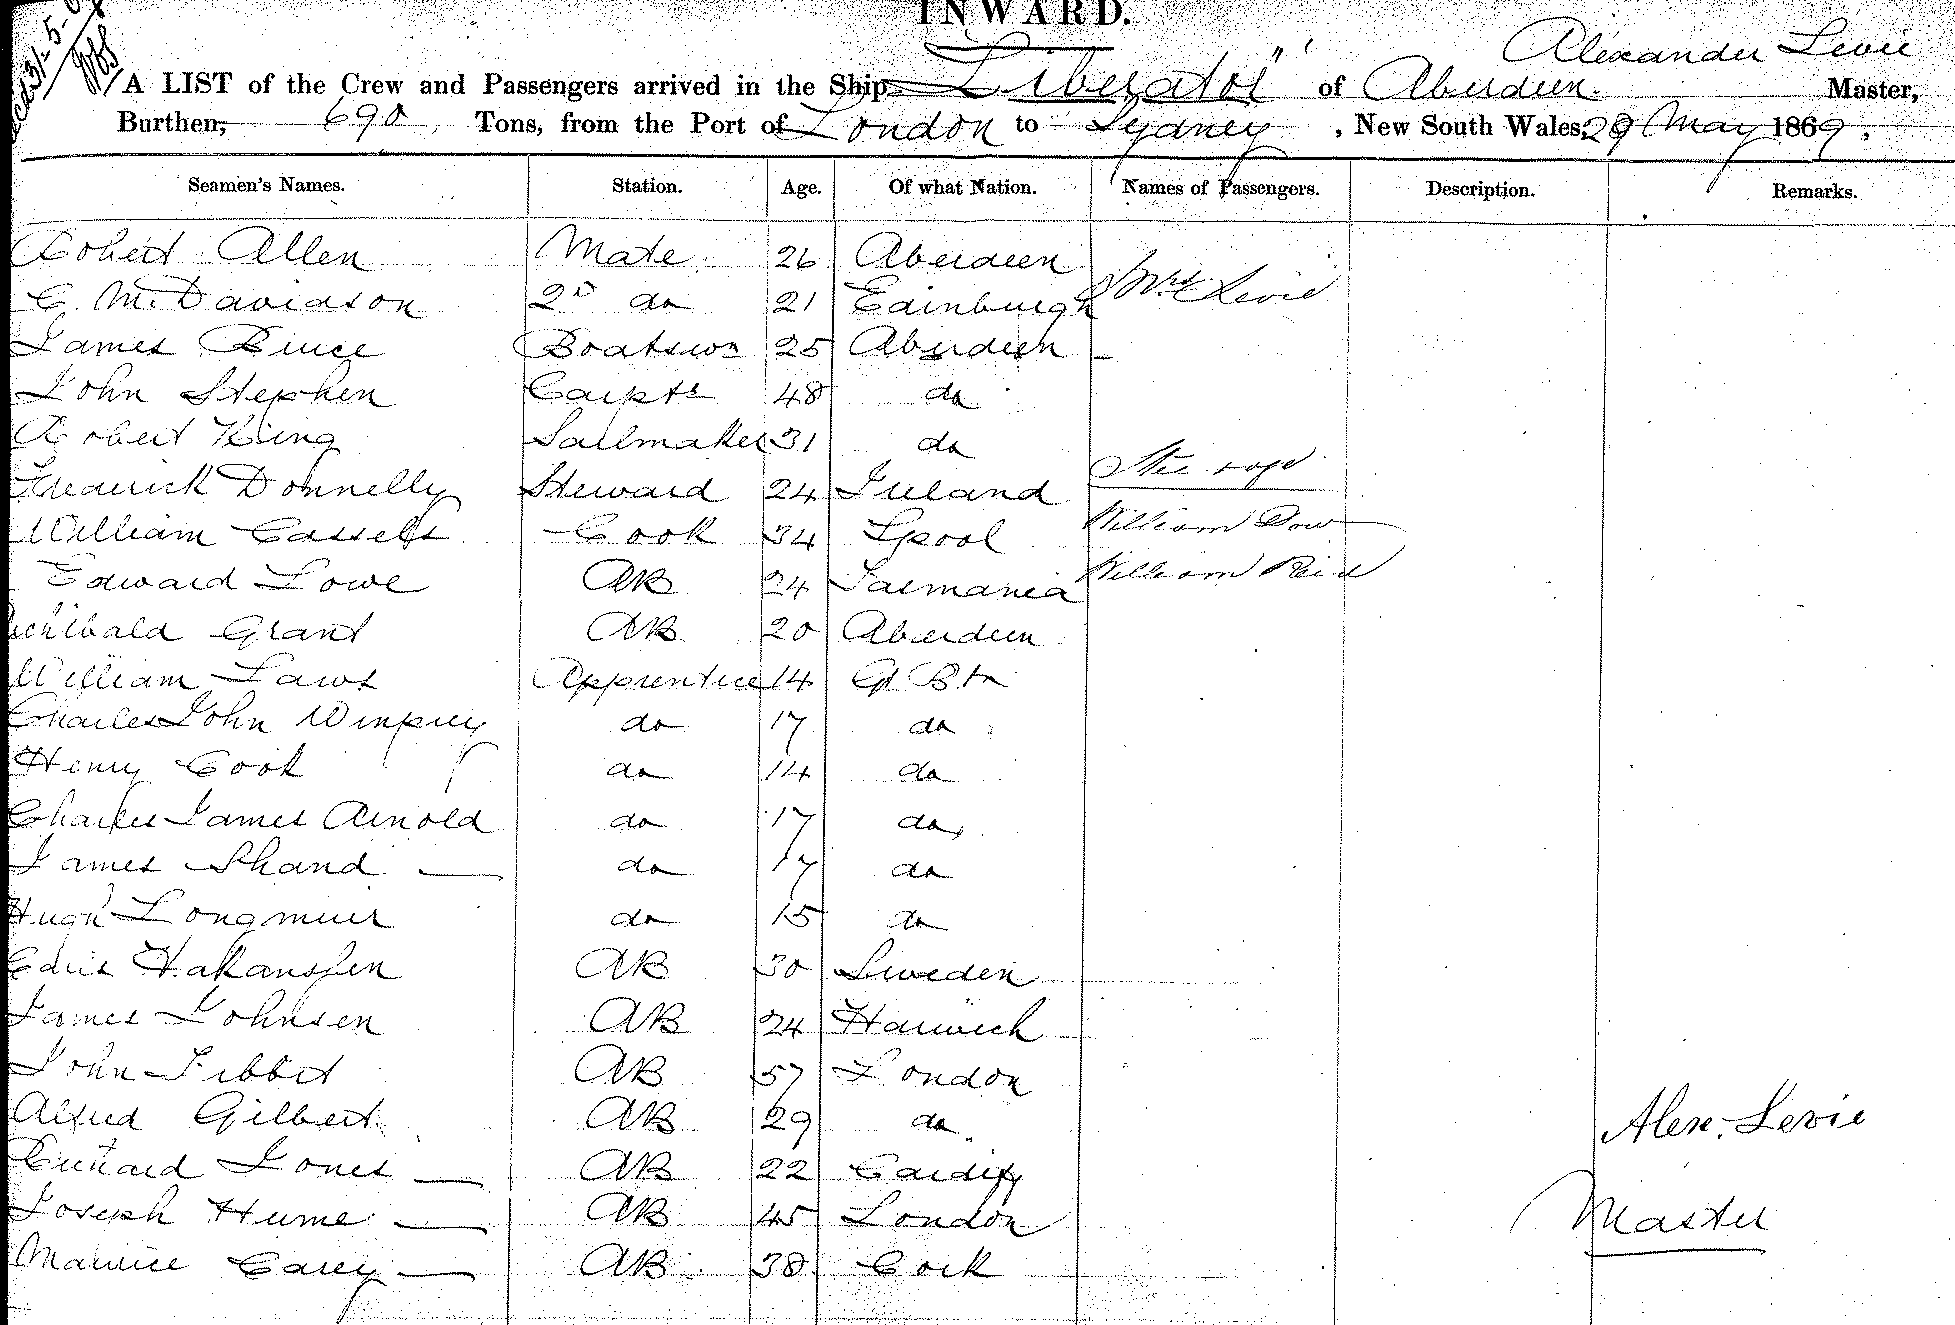 INWARD.
Alexander Levie
A LIST of the Crew and Passengers arrived in the Ship "Liberator" of Aberdeen Master,
Burthen, 690 Tons, from the Port of London to Sydney, New South Wales, 29 May 1869.
Seamen's Names. Station. Age. Of what Nation. Names of Passengers. Description. Remarks.
Robert Allen Mate 26 Aberdeen
Mrs Levie
C. McDavidson 2D do 21 Edinburgh
James Bruce Boatswn 25 Aberdeen
John Stephen Carptr 48 do
Robert King Sailmaker 31 do
Steerage
Frederick Donnelly Steward 24 Ireland
William Dow
William Cassels Cook 34 Lpool
William Reid
Edward Lowe AB 24 Tasmania
Archibald Grant AB 20 Aberdeen
William Laws Apprentice 14 Gt Btn
Charles John Wimprey do 17 do
Henry Cook do 14 do
Charles James Arnold do 17 do
James Shand do 17 do
Hugh Longmuir do 15 do
Hakanssen AB 30 Sweden
James Johnsen AB 24 Harwich
John Tibbit AB 57 London
Alfred Gilbert AB 29 do
Alex. Levie
Richard Jones AB 22 Cardiff
Joseph Hume AB 45 London
Master
Maurice Carey AB 38 Cork